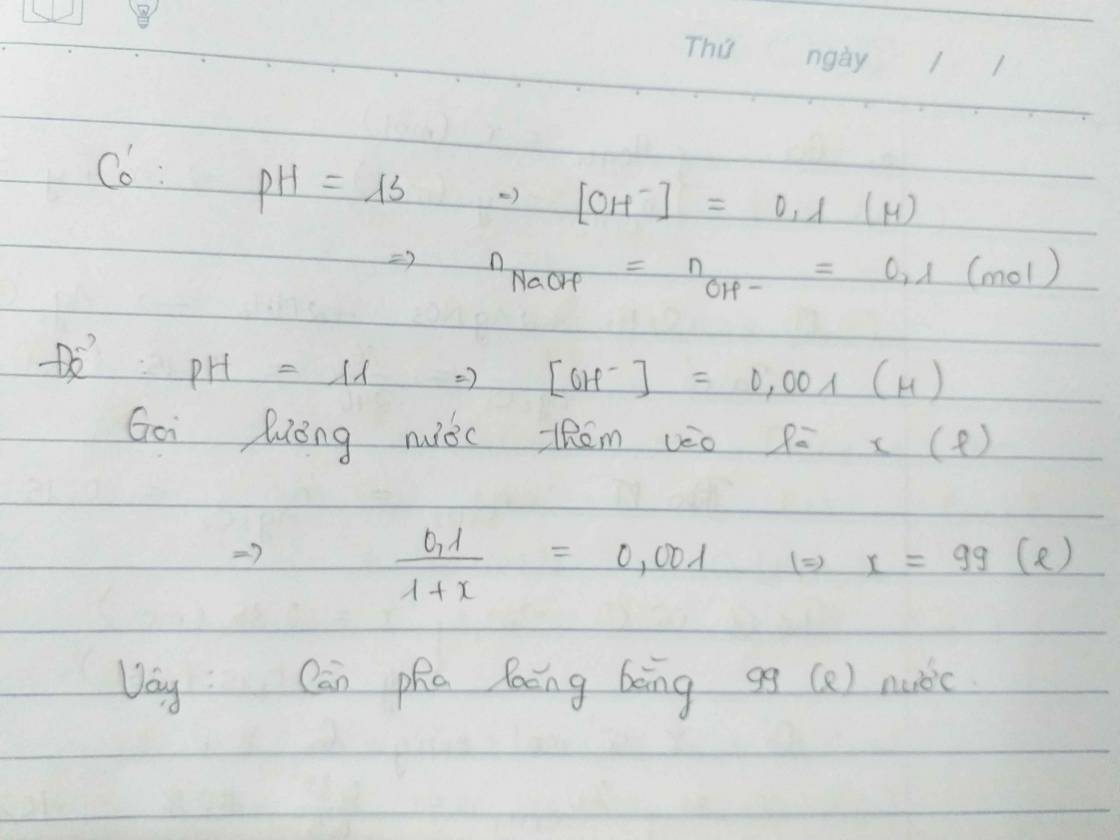 Thứ ngày / /
Có : pH = 13 => [OH⁻] = 0,1 (M)
=> n NaOH = n OH⁻ = 0,1 (mol)
Để : pH = 11 => [OH⁻] = 0,001 (M)
Gọi lượng nước thêm vào là x (l)
=> 0,1 / (1 + x) = 0,001 (=> x = 99 (l)
Vậy : Cần pha loãng bằng 99 (l) nước.